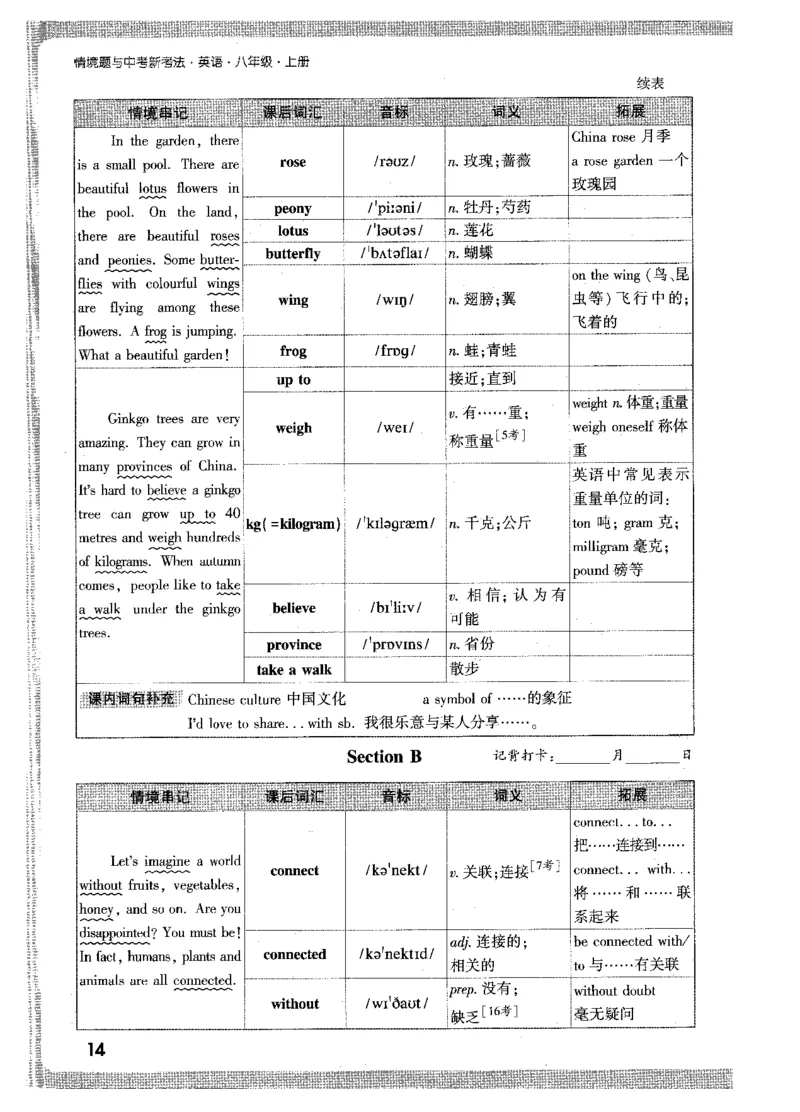 情境题与中考新考法·英语·八年级·上册
续表
情境串记 课后词汇 音标 词义 拓展
In the garden, there
is a small pool. There are
beautiful lotus flowers in
the pool. On the land,
there are beautiful roses
and peonies. Some butter-
flies with colourful wings
are flying among these
flowers. A frog is jumping.
What a beautiful garden!
rose /rəʊz/ n. 玫瑰;蔷薇
China rose 月季
a rose garden 一个
玫瑰园
peony /ˈpiːəni/ n. 牡丹;芍药
lotus /ˈləʊtəs/ n. 莲花
butterfly /ˈbʌtəflaɪ/ n. 蝴蝶
wing /wɪŋ/ n. 翅膀;翼
on the wing (鸟、昆
虫等)飞行中的;
飞着的
frog /frɒɡ/ n. 蛙;青蛙
Ginkgo trees are very
amazing. They can grow in
many provinces of China.
It's hard to believe a ginkgo
tree can grow up to 40
metres and weigh hundreds
of kilograms. When autumn
comes, people like to take
a walk under the ginkgo
trees.
up to 接近;直到
weigh /weɪ/
v. 有……重;
称重量[5考]
weight n. 体重;重量
weigh oneself 称体
重
kg(=kilogram) /ˈkɪləɡræm/ n. 千克;公斤
英语中常见表示
重量单位的词:
ton 吨; gram 克;
milligram 毫克;
pound 磅等
believe /bɪˈliːv/
v. 相信;认为有
可能
province /ˈprɒvɪns/ n. 省份
take a walk 散步
课内词句补充 Chinese culture 中国文化 a symbol of ……的象征
I'd love to share...with sb. 我很乐意与某人分享……。
Section B 记背打卡:______月______日
情境串记 课后词汇 音标 词义 拓展
Let's imagine a world
without fruits, vegetables,
honey, and so on. Are you
disappointed? You must be!
In fact, humans, plants and
animals are all connected.
connect /kəˈnekt/ v. 关联;连接[7考]
connect...to...
把……连接到……
connect... with...
将……和……联
系起来
connected /kəˈnektɪd/
adj. 连接的;
相关的
be connected with/
to 与……有关联
without /wɪˈðaʊt/
prep. 没有;
缺乏[16考]
without doubt
毫无疑问
14